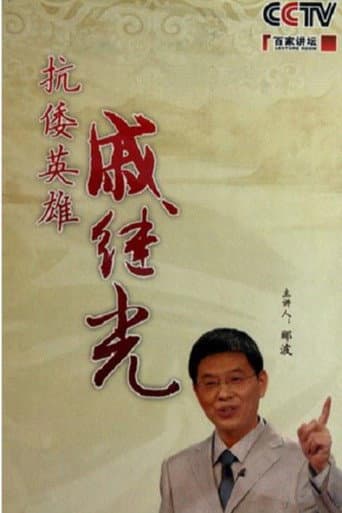 CCTV
百家讲坛
LECTURE ROOM
抗倭英雄
戚继光
主讲人：郦波